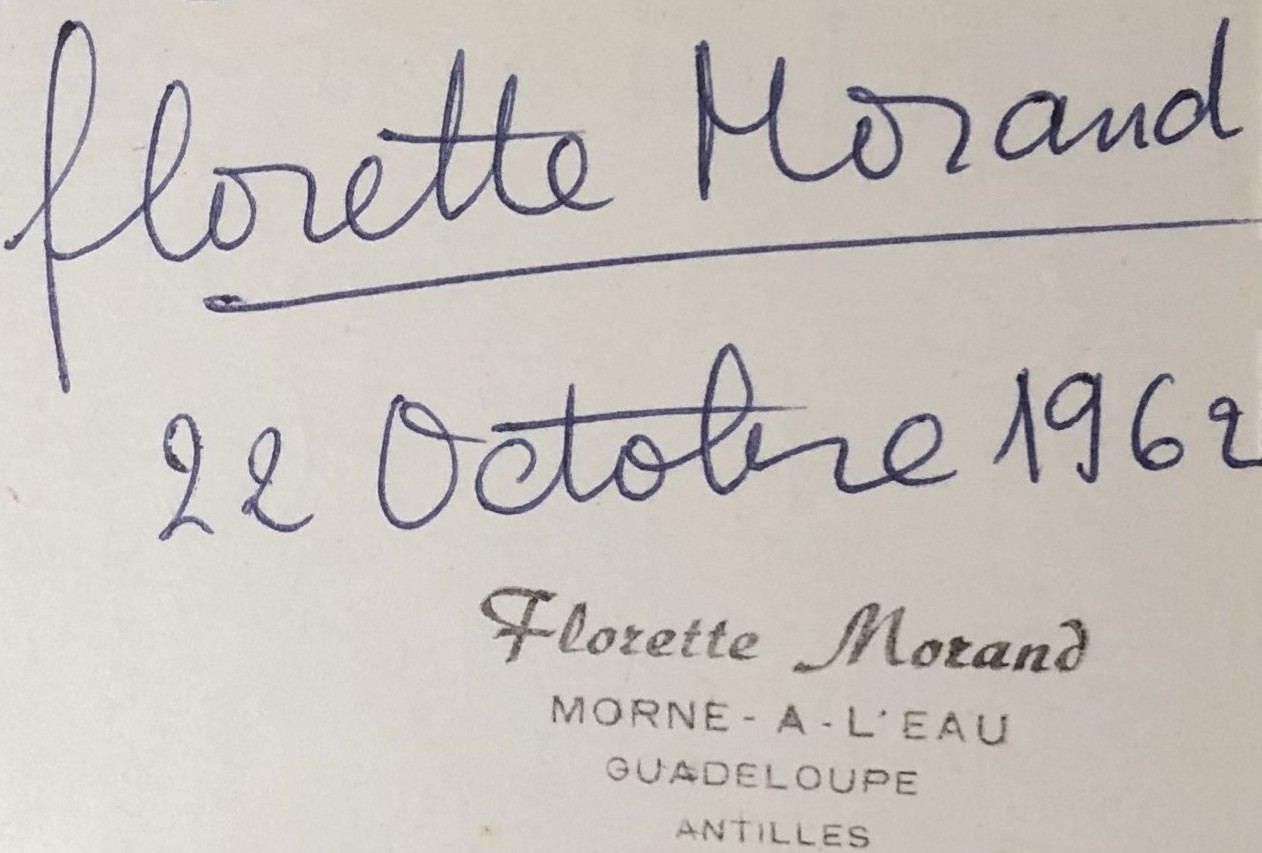 Florette Morand
22 Octobre 1962
Florette Morand
MORNE-A-L'EAU
GUADELOUPE
ANTILLES